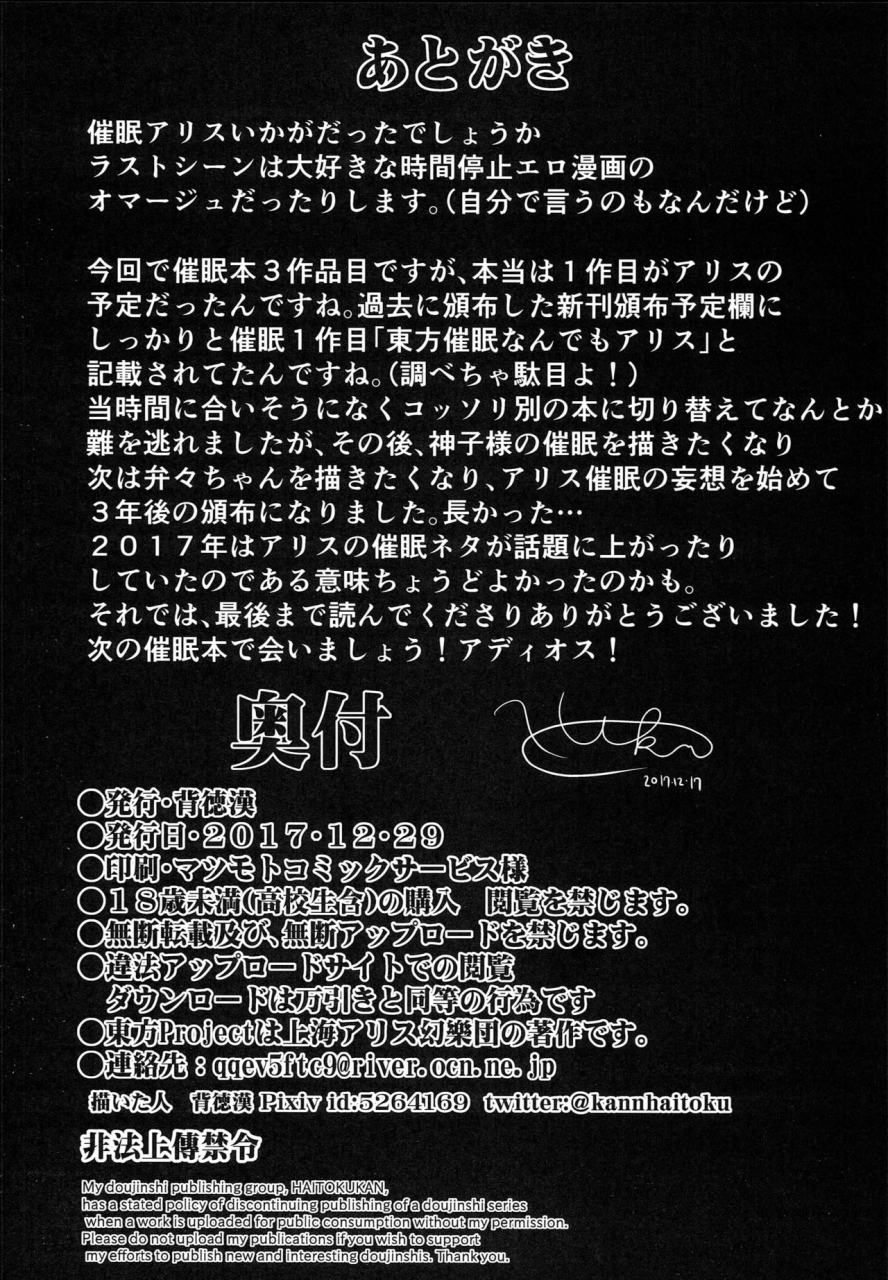 あとがき
催眠アリスいかがだったでしょうか
ラストシーンは大好きな時間停止エロ漫画の
オマージュだったりします。（自分で言うのもなんだけど）
今回で催眠本３作品目ですが、本当は１作目がアリスの
予定だったんですね。過去に頒布した新刊頒布予定欄に
しっかりと催眠１作目「東方催眠なんでもアリス」と
記載されてたんですね。（調べちゃ駄目よ！）
当時間に合いそうになくコッソリ別の本に切り替えてなんとか
難を逃れましたが、その後、神子様の催眠を描きたくなり
次は弁々ちゃんを描きたくなり、アリス催眠の妄想を始めて
３年後の頒布になりました。長かった…
２０１７年はアリスの催眠ネタが話題に上がったり
していたのである意味ちょうどよかったのかも。
それでは、最後まで読んでくださりありがとうございました！
次の催眠本で会いましょう！アディオス！
奥付
2017.12.17
○発行・背徳漢
○発行日・２０１７・１２・２９
○印刷・マツモトコミックサービス様
○１８歳未満(高校生含)の購入　閲覧を禁じます。
○無断転載及び、無断アップロードを禁じます。
○違法アップロードサイトでの閲覧
ダウンロードは万引きと同等の行為です
○東方Projectは上海アリス幻樂団の著作です。
○連絡先：qqev5ftc9@river.ocn.ne.jp
描いた人　背徳漢 Pixiv id:5264169　twitter:@kannhaitoku
非法上傳禁令
My doujinshi publishing group, HAITOKUKAN,
has a stated policy of discontinuing publishing of a doujinshi series
when a work is uploaded for public consumption without my permission.
Please do not upload my publications if you wish to support
my efforts to publish new and interesting doujinshis. Thank you.